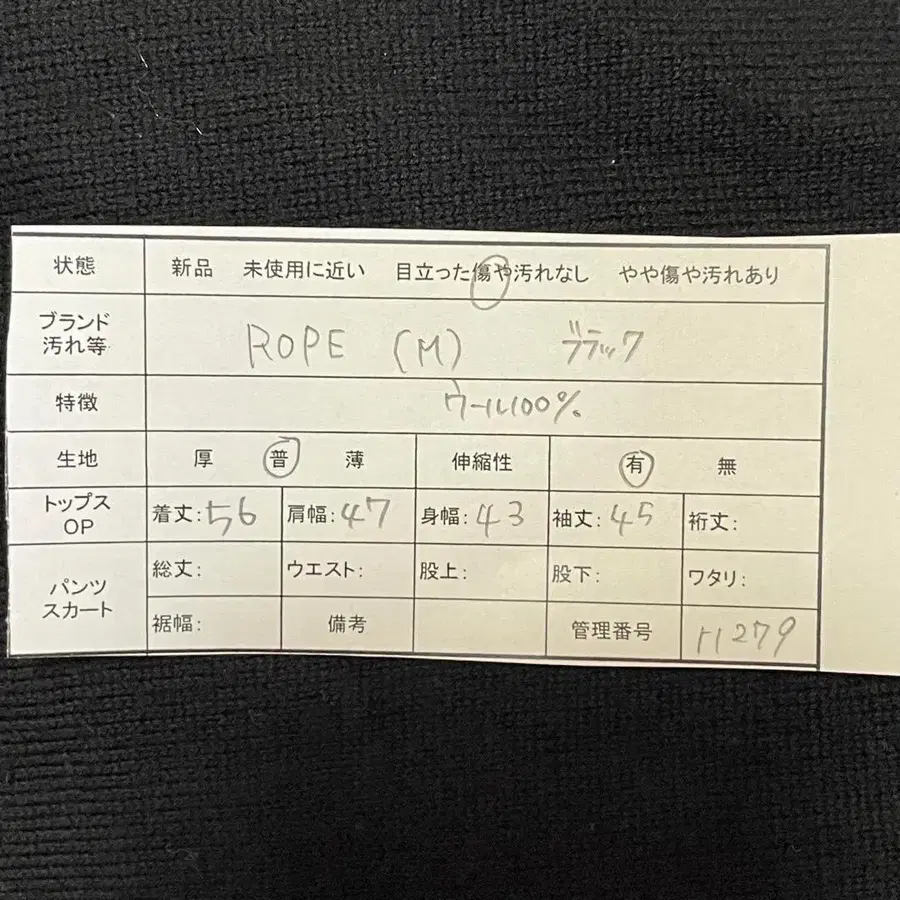 状態 新品 未使用に近い 目立った傷や汚れなし やや傷や汚れあり
ブランド
汚れ等 ROPE (M) ブラック
特徴 ウール100%
生地 厚 普 薄 伸縮性 有 無
トップス
OP 着丈:56 肩幅:47 身幅:43 袖丈:45 裄丈:
パンツ
スカート 総丈: ウエスト: 股上: 股下: ワタリ:
裾幅: 備考 管理番号